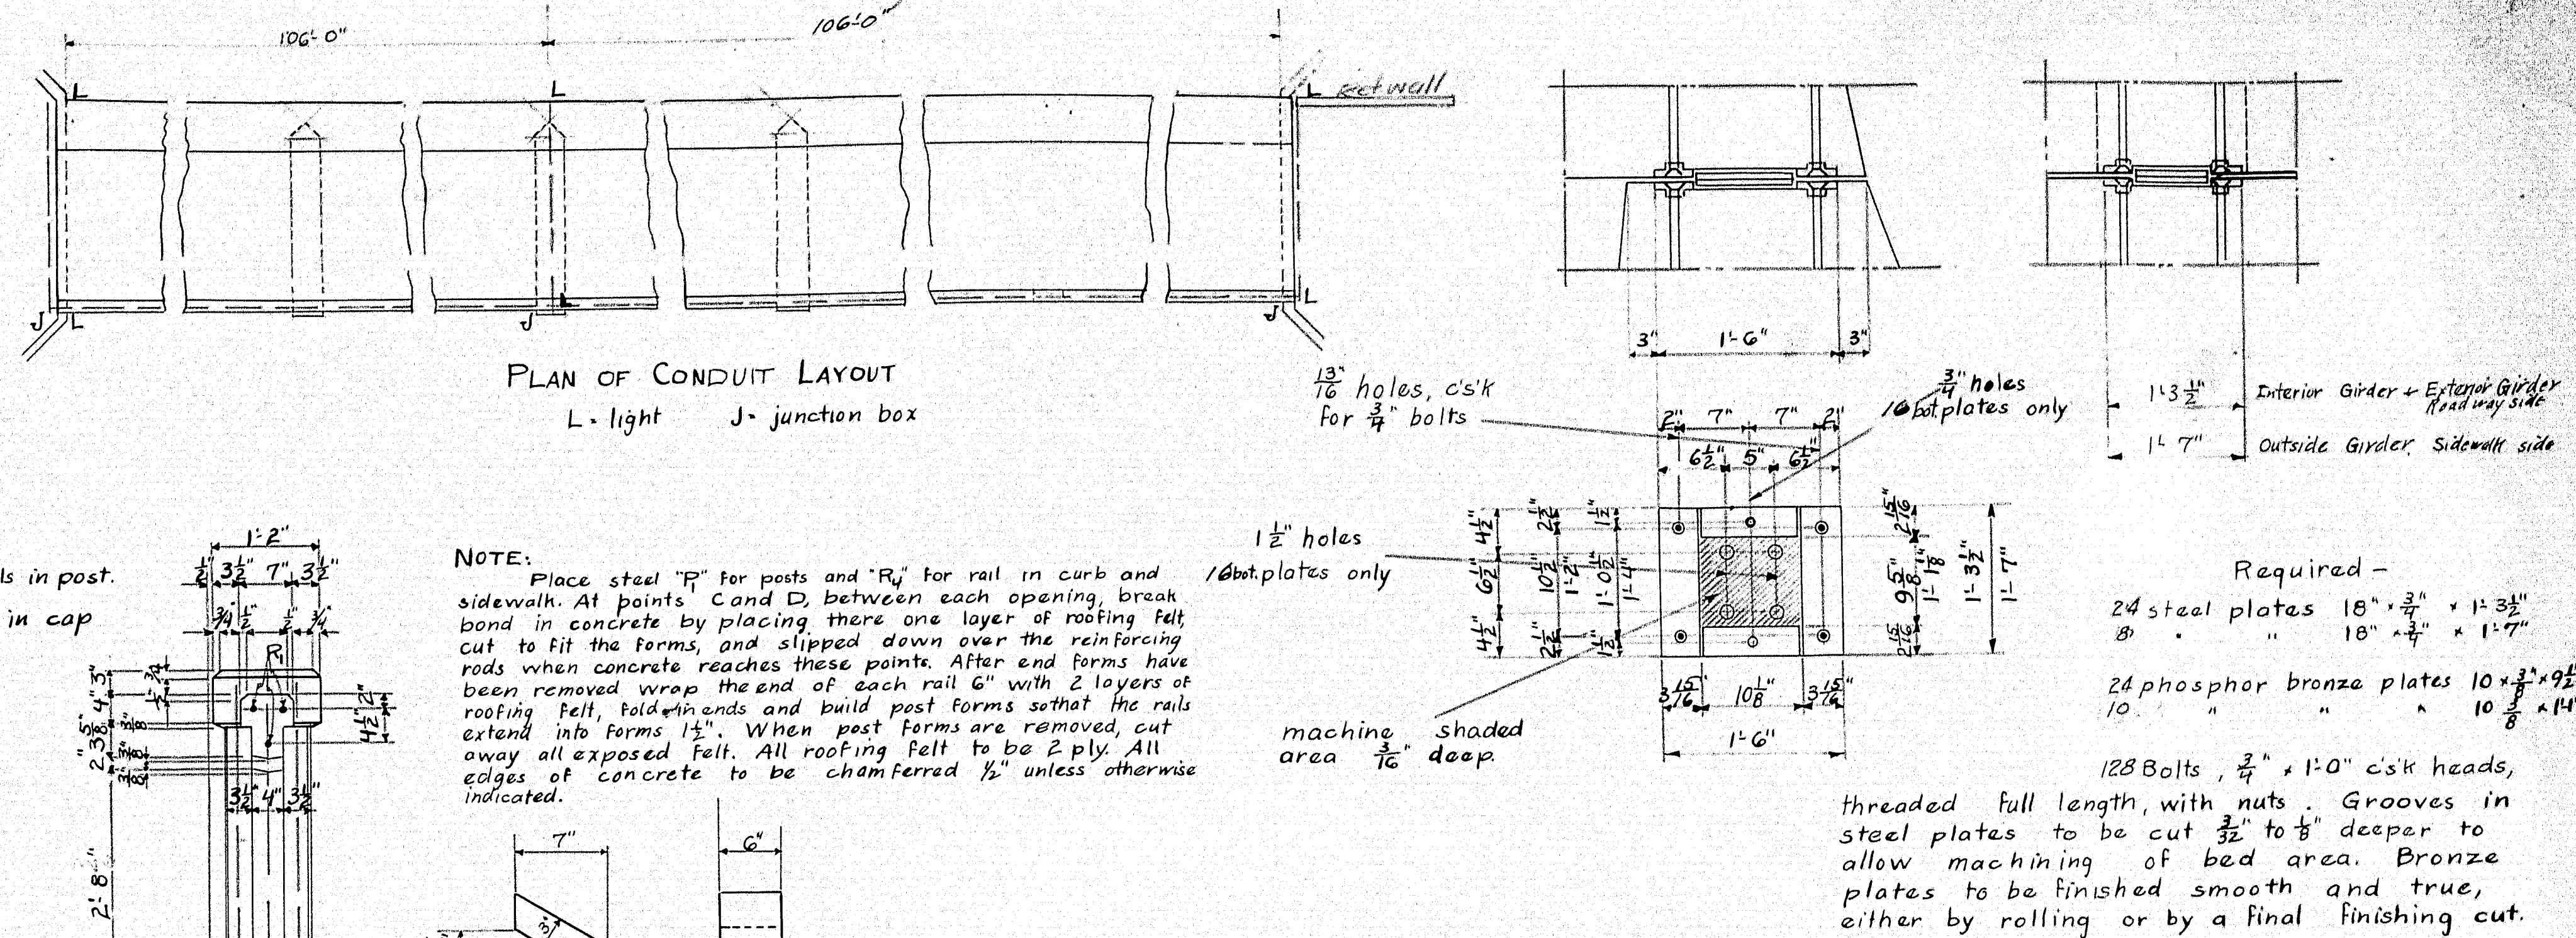 106'-0"
106'-0"
L
L
L
wall
J
L
J
L
J
L
PLAN OF CONDUIT LAYOUT
L = light J = junction box
3"
1'-6"
3"
1'-3 1/2" Interior Girder + Exterior Girder
Roadway side
1'-7" Outside Girder, Sidewalk side
13/16" holes, c's'k
for 3/4" bolts
3/4" holes
16 bot. plates only
2" 7" 7" 2"
6 1/2" 5" 6 1/2"
1 1/2" holes
16 bot. plates only
4 1/2" 6 1/2" 4 1/2"
2 1/2" 10 1/2" 2 1/2"
1'-2"
1 1/2" 1'-0 1/2" 1 1/2"
1'-4"
2 15/16" 9 5/8" 2 15/16"
1'-1 1/8"
1'-3 1/2"
1'-7"
3 15/16" 10 1/8" 3 15/16"
1'-6"
machine shaded
area 3/16" deep.
Required -
24 steel plates 18" x 3/4" x 1'-3 1/2"
8 " " 18" x 3/4" x 1'-7"
24 phosphor bronze plates 10 x 3/8" x 9 1/2
10 " " " 10 3/8 x 14"
128 Bolts, 3/4" x 1'-0" c's'k heads,
threaded full length, with nuts. Grooves in
steel plates to be cut 3/32" to 1/8" deeper to
allow machining of bed area. Bronze
plates to be finished smooth and true,
either by rolling or by a final finishing cut.
ls in post.
in cap
1'-2"
1/2" 3 1/2" 7" 3 1/2"
3/4" 1/2" 1/2" 3/4"
R1
3"
4"
4 1/2" 2"
3 1/2" 4" 3 1/2"
2'-8"
NOTE:
Place steel "P1" for posts and "R4" for rail in curb and
sidewalk. At points C and D, between each opening, break
bond in concrete by placing there one layer of roofing felt,
cut to fit the forms, and slipped down over the reinforcing
rods when concrete reaches these points. After end forms have
been removed wrap the end of each rail 6" with 2 layers of
roofing felt, fold in ends and build post forms so that the rails
extend into forms 1 1/2". When post forms are removed, cut
away all exposed felt. All roofing felt to be 2 ply. All
edges of concrete to be chamferred 1/2" unless otherwise
indicated.
7"
3"
6"